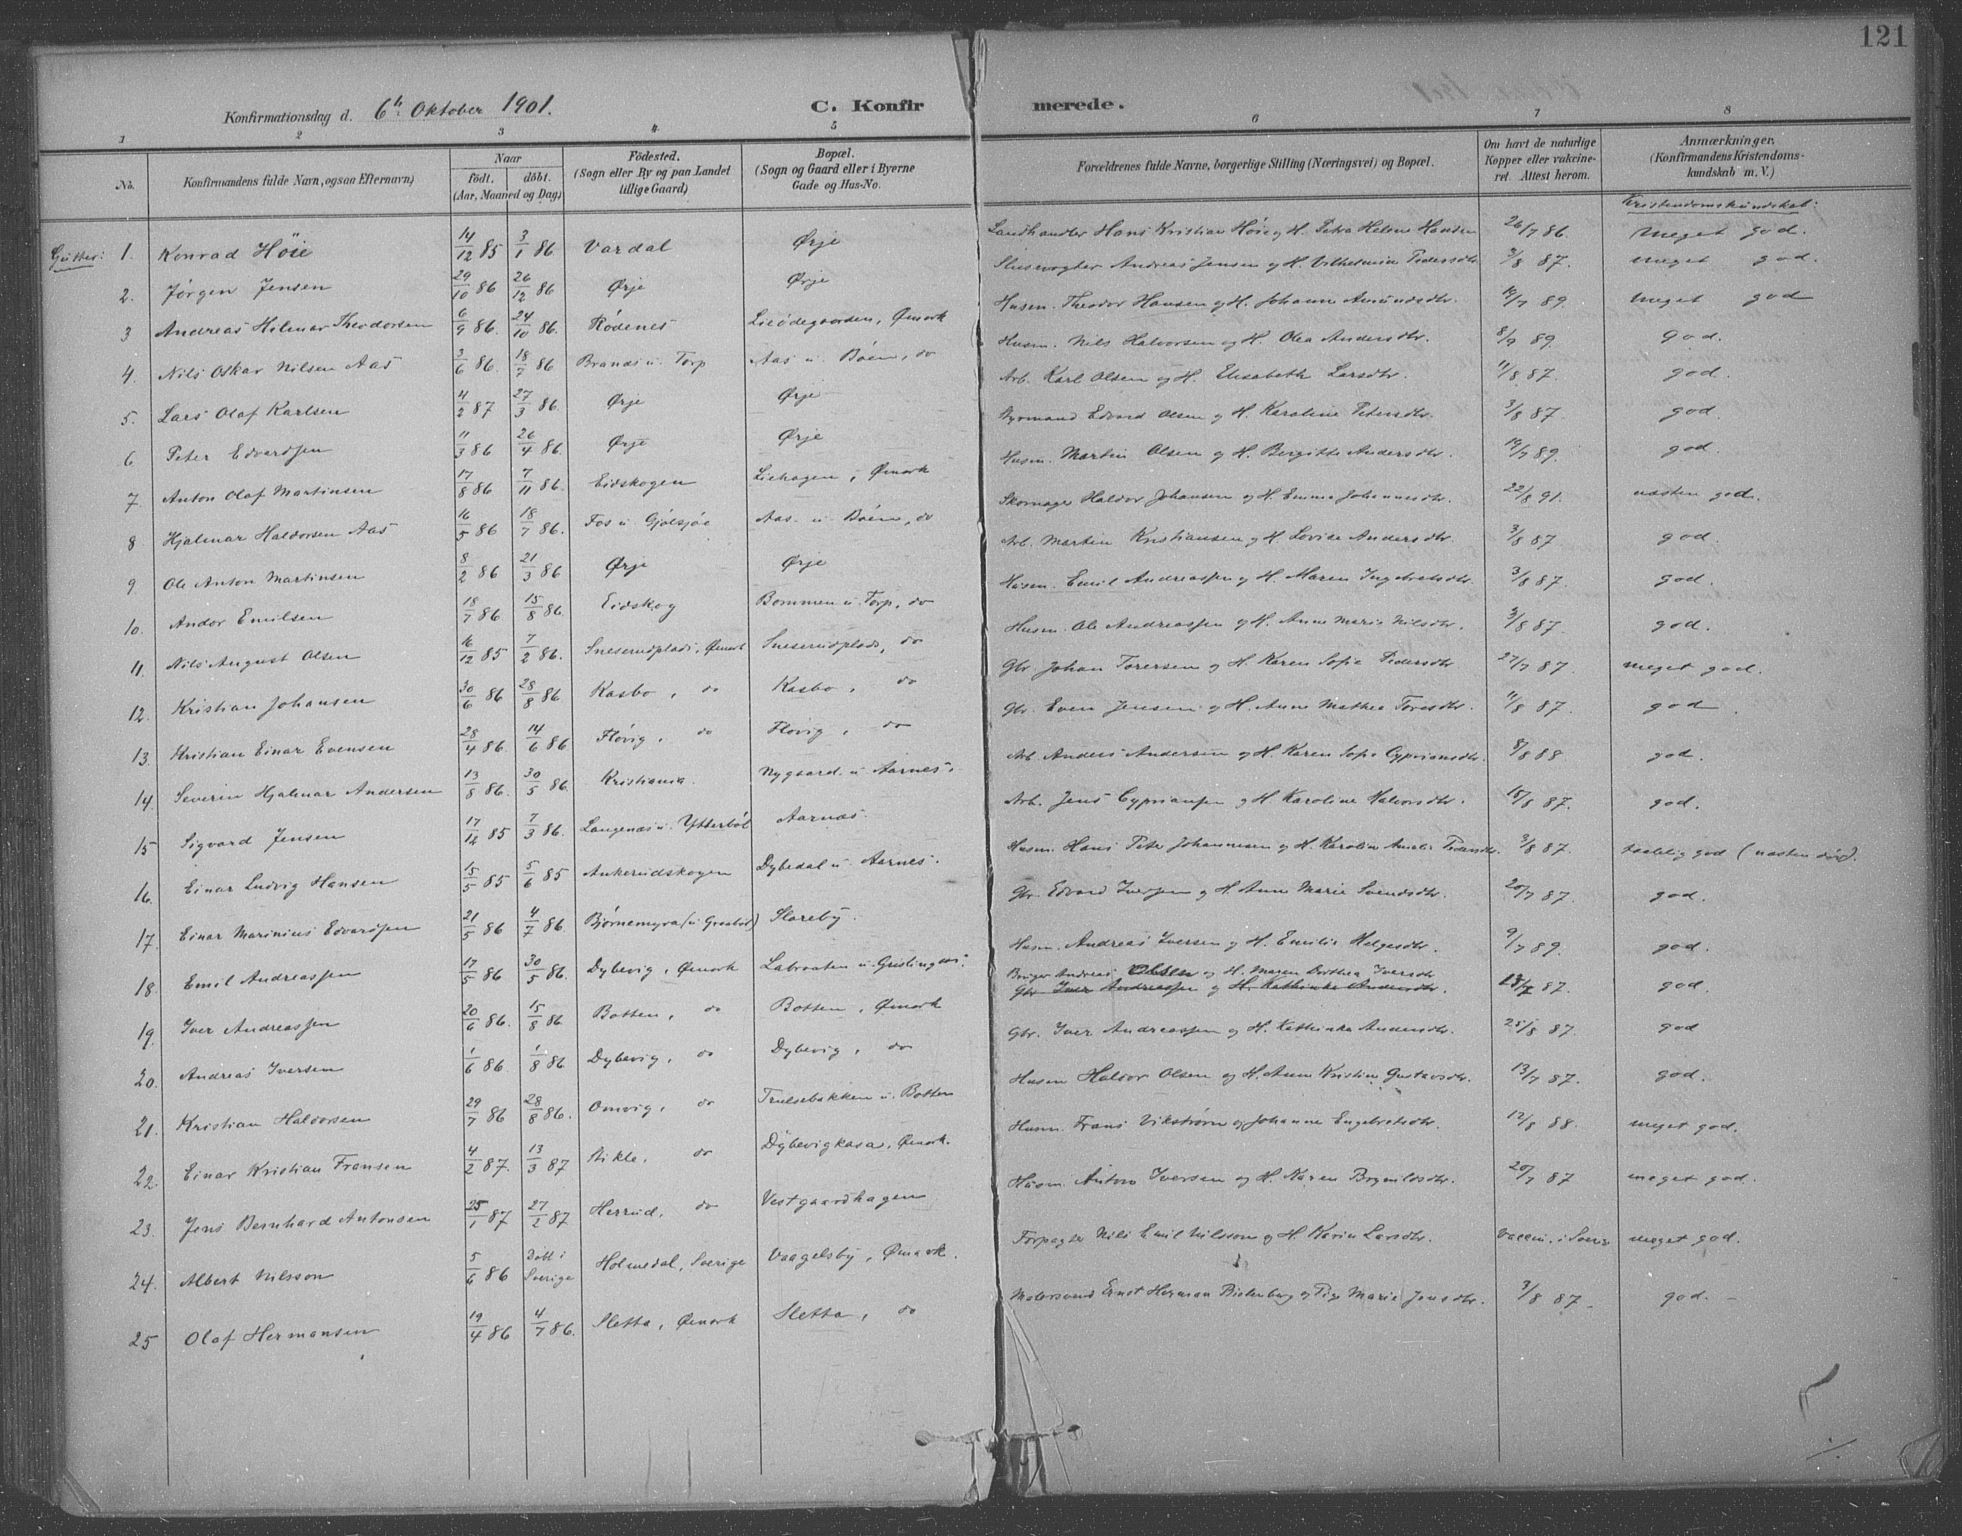 121
Konfirmationsdag d. 6te Oktober 1901. C. Konfirmerede.
1 2 3 4 5 6 7 8
No. Konfirmandens fulde Navn, ogsaa Efternavn) Naar födt. döbt. (Aar, Maaned og Dag) Födested. (Sogn eller By og paa Landet tillige Gaard) Bopæl. (Sogn og Gaard eller i Byerne Gade og Hus-No. Forældrenes fulde Navne, borgerlige Stilling (Næringsvei) og Bopæl. Om havt de naturlige Kopper eller vakcineret. Attest herom. Anmærkninger. (Konfirmandens Kristendomskundskab m. V.)
Kristendomskundskab:
Gutter: 1. Konrad Höie 14/12 85 3/1 86 Vardal Ørje Landhandler Hans Kristian Höie og H. Petra Helene Hansen 26/7 86. meget god.
2. Jørgen Jensen 29/10 86 26/12 86 Ørje Ørje Slusevogter Andreas Jensen og H. Vilhelmine Pedersdtr. 3/8 87. meget god.
3 Andreas Hilmar Theodorsen 6/9 86. 24/10 86. Rödenes Liödegaarden, Ømark Husm. Theodor Hansen og H. Johanne Amundsdtr. 19/7 89. meget god
4. Nils Oskar Nilsen Aas 3/6 86. 18/7 86 Brandsu. Torp Aas u. Böen, do Husm. Nils Halvorsen og H. Olea Andersdtr. 8/7 89. god.
5. Lars Olaf Karlsen 4/2 87 27/3 86. Ørje Ørje Arb. Karl Olsen og H. Elisabeth Larsdtr. 11/8 87. god.
6 Peter Edvardsen 11/3 86 26/4 86. Ørje Ørje Nyrmand Edvard Olsen og H. Karoline Petersdtr. 3/8 87. god.
7. Anton Olaf Martinsen 17/8 86 7/11 86. Eidskogen Liehagen, Ømark Husm. Martin Olsen og H. Bergitte Andersdtr. 19/7 89. god.
8 Hjalmar Haldorsen Aas 16/5 86 18/7 86. Fos u. Gjölsjöe Aas u. Böen, do Skomager Haldor Johansen og H. Emma Johannesdtr. 22/8 91. næsten god.
9 Ole Anton Martinsen 8/2 86 21/3 86 Ørje Ørje Arb. Martin Kristiansen og H. Lovise Andersdtr. 3/8 87. god.
10. Andor Emilsen 18/7 86 15/8 86. Eidskog Bommen u. Torp, do Husm. Emil Andreassen og H. Maren Ingebretsdtr. 3/8 87. god.
11. Nils August Olsen 16/12 85 7/2 86. Sneserudplads, Ømark Sneserudplads, do Husm. Ole Andreassen og H. Anne Marie Nilsdtr. 3/8 87. god.
12. Kristian Johansen 30/6 86 28/8 86. Kasbo, do Kasbo, do Gbr. Johan Torersen og H. Karen Sofie Pedersdtr 27/7 87. meget god.
13. Kristian Einar Evensen 28/4 86. 14/6 86 Flövig, do Flövig, do Gbr. Even Jensen og H. Anne Mathea Toresdtr. 11/8 87. god.
14. Severin Hjalmar Andersen 13/8 86. 30/5 86. Kristiania. Nygaard u. Aarnes. Arb. Anders Andersen og H. Karen Sofie Cypriansdtr. 8/8 88 god.
15 Sigvard Jensen 17/12 85 7/3 86. Langenæs u. Ytterböl Aarnæs. Arb. Jens Cypriansen og H Karoline Halvorsdtr. 15/8 87. god.
16. Einar Ludvig Hansen 15/5 85 5/6 85 Ankerudskogen Dybedal u. Aarnes. Husm. Hans Peter Johannesen og H. Karoline Amalie Pedersdtr. 3/8 87. taalelig god (næsten döv).
17. Einar Marinius Edvardsen 21/5 86 4/7 86. Björnemyra (u Graaböl) Sloreby. Gbr. Edvard Iversen og H Anne Marie Svendsdtr. 20/7 87. god.
18. Emil Andreassen 17/5 86 30/5 86. Dybevig, Ømark Labraaten u. Gristingen. Husm. Andreas Iversen og H. Emilie Helgesdtr. 9/7 89. god.
19. Iver Andreassen 20/6 86. 15/8 86 Botten, do Botten, Ømark Bruger Andreas Olsen og H. Maren Dorthea Iversdtr Gbr. Iver Andreassen og H. Kathinka Andersdtr. 13/7 87. god.
20. Andreas Iversen 1/6 86. 1/8 86. Dybevig, do Dybevig, do Gbr. Iver Andreassen og H. Kathinka Andersdtr. 25/8 87. god
21. Kristian Haldorsen 29/7 86 28/8 86. Omvig, do Trulsebakken u. Botten Husm Haldor Olsen og H. Anne Kristine Gustavsdtr. 13/7 87. god.
22. Einar Kristian Fransen 4/2 87. 13/3 87 Aikle, do Dybevigkasa, Ømark. Husm. Frans Vikström og Johanne Engebretsdtr. 12/8 88. meget god.
23. Jens Bernhard Antonsen 25/1 87 27/2 87 Herrud, do Vestgaardhagen Husm. Anton Iversen og H. Karen Brynildsdtr. 20/7 87 meget god.
24. Albert Nilsson 5/6 86 Döbt i Sverige Holmedal, Sverige Vaagelsby, Ømark. Forpagter Nils Emil Nilsson og H. Karin Larsdtr. vaccin. i Sverige meget god.
25 Olaf Hermansen 19/4 86 4/7 86. Sletta, Ømark Sletta, do Malersvend Ernst Herman og Pige Marie Jensdtr. 3/8 87. god.